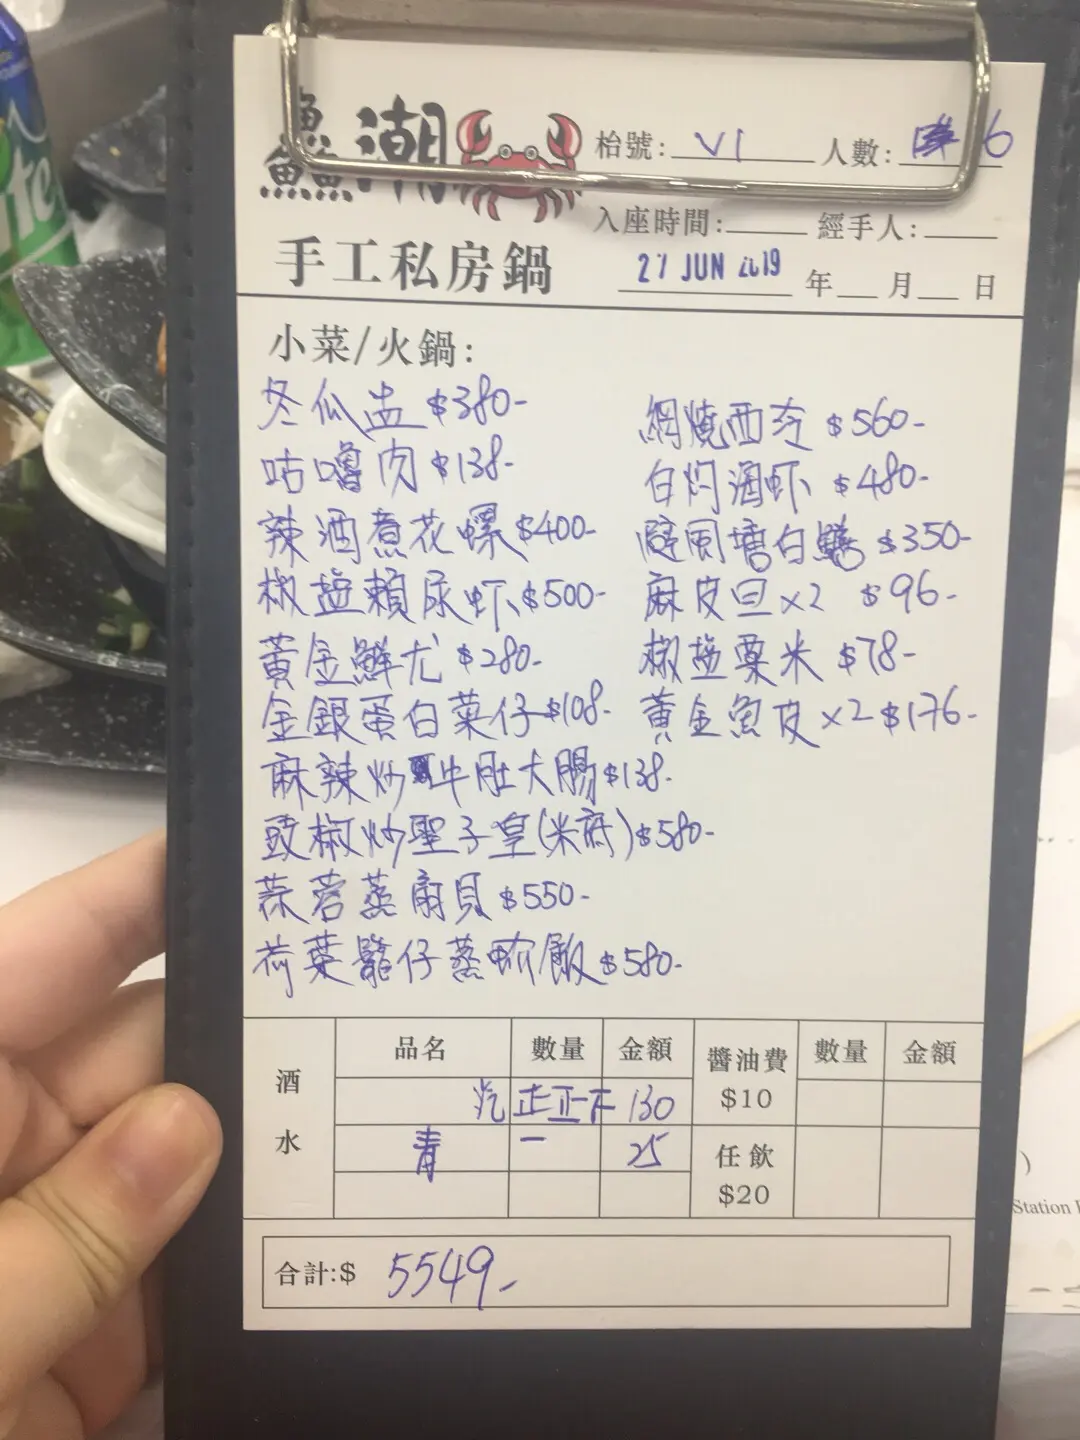 鱻潮
枱號: V1 人數: 6
入座時間: 經手人:
手工私房鍋
27 JUN 2019 年 月 日
小菜/火鍋:
冬瓜盅 $380-
咕嚕肉 $138-
辣酒煮花螺 $400-
椒盐賴尿虾 $500-
黃金鮮尤 $280-
金銀蛋白菜仔 $108-
麻辣炒牛肚大腸 $138-
豉椒炒聖子皇(米府) $580-
蒜蓉蒸扇貝 $550-
荷葉龍仔蒸飯 $580-
網燒西冷 $560-
白灼海虾 $480-
避風塘白鱔 $350-
麻皮旦 x2 $96-
椒盐粟米 $78-
黃金魚皮 x2 $176-
酒水
品名 數量 金額
汽 正正下 130
青 一 25
醬油費 $10 數量 金額
任飲 $20
合計:$ 5549-
te
)
Station